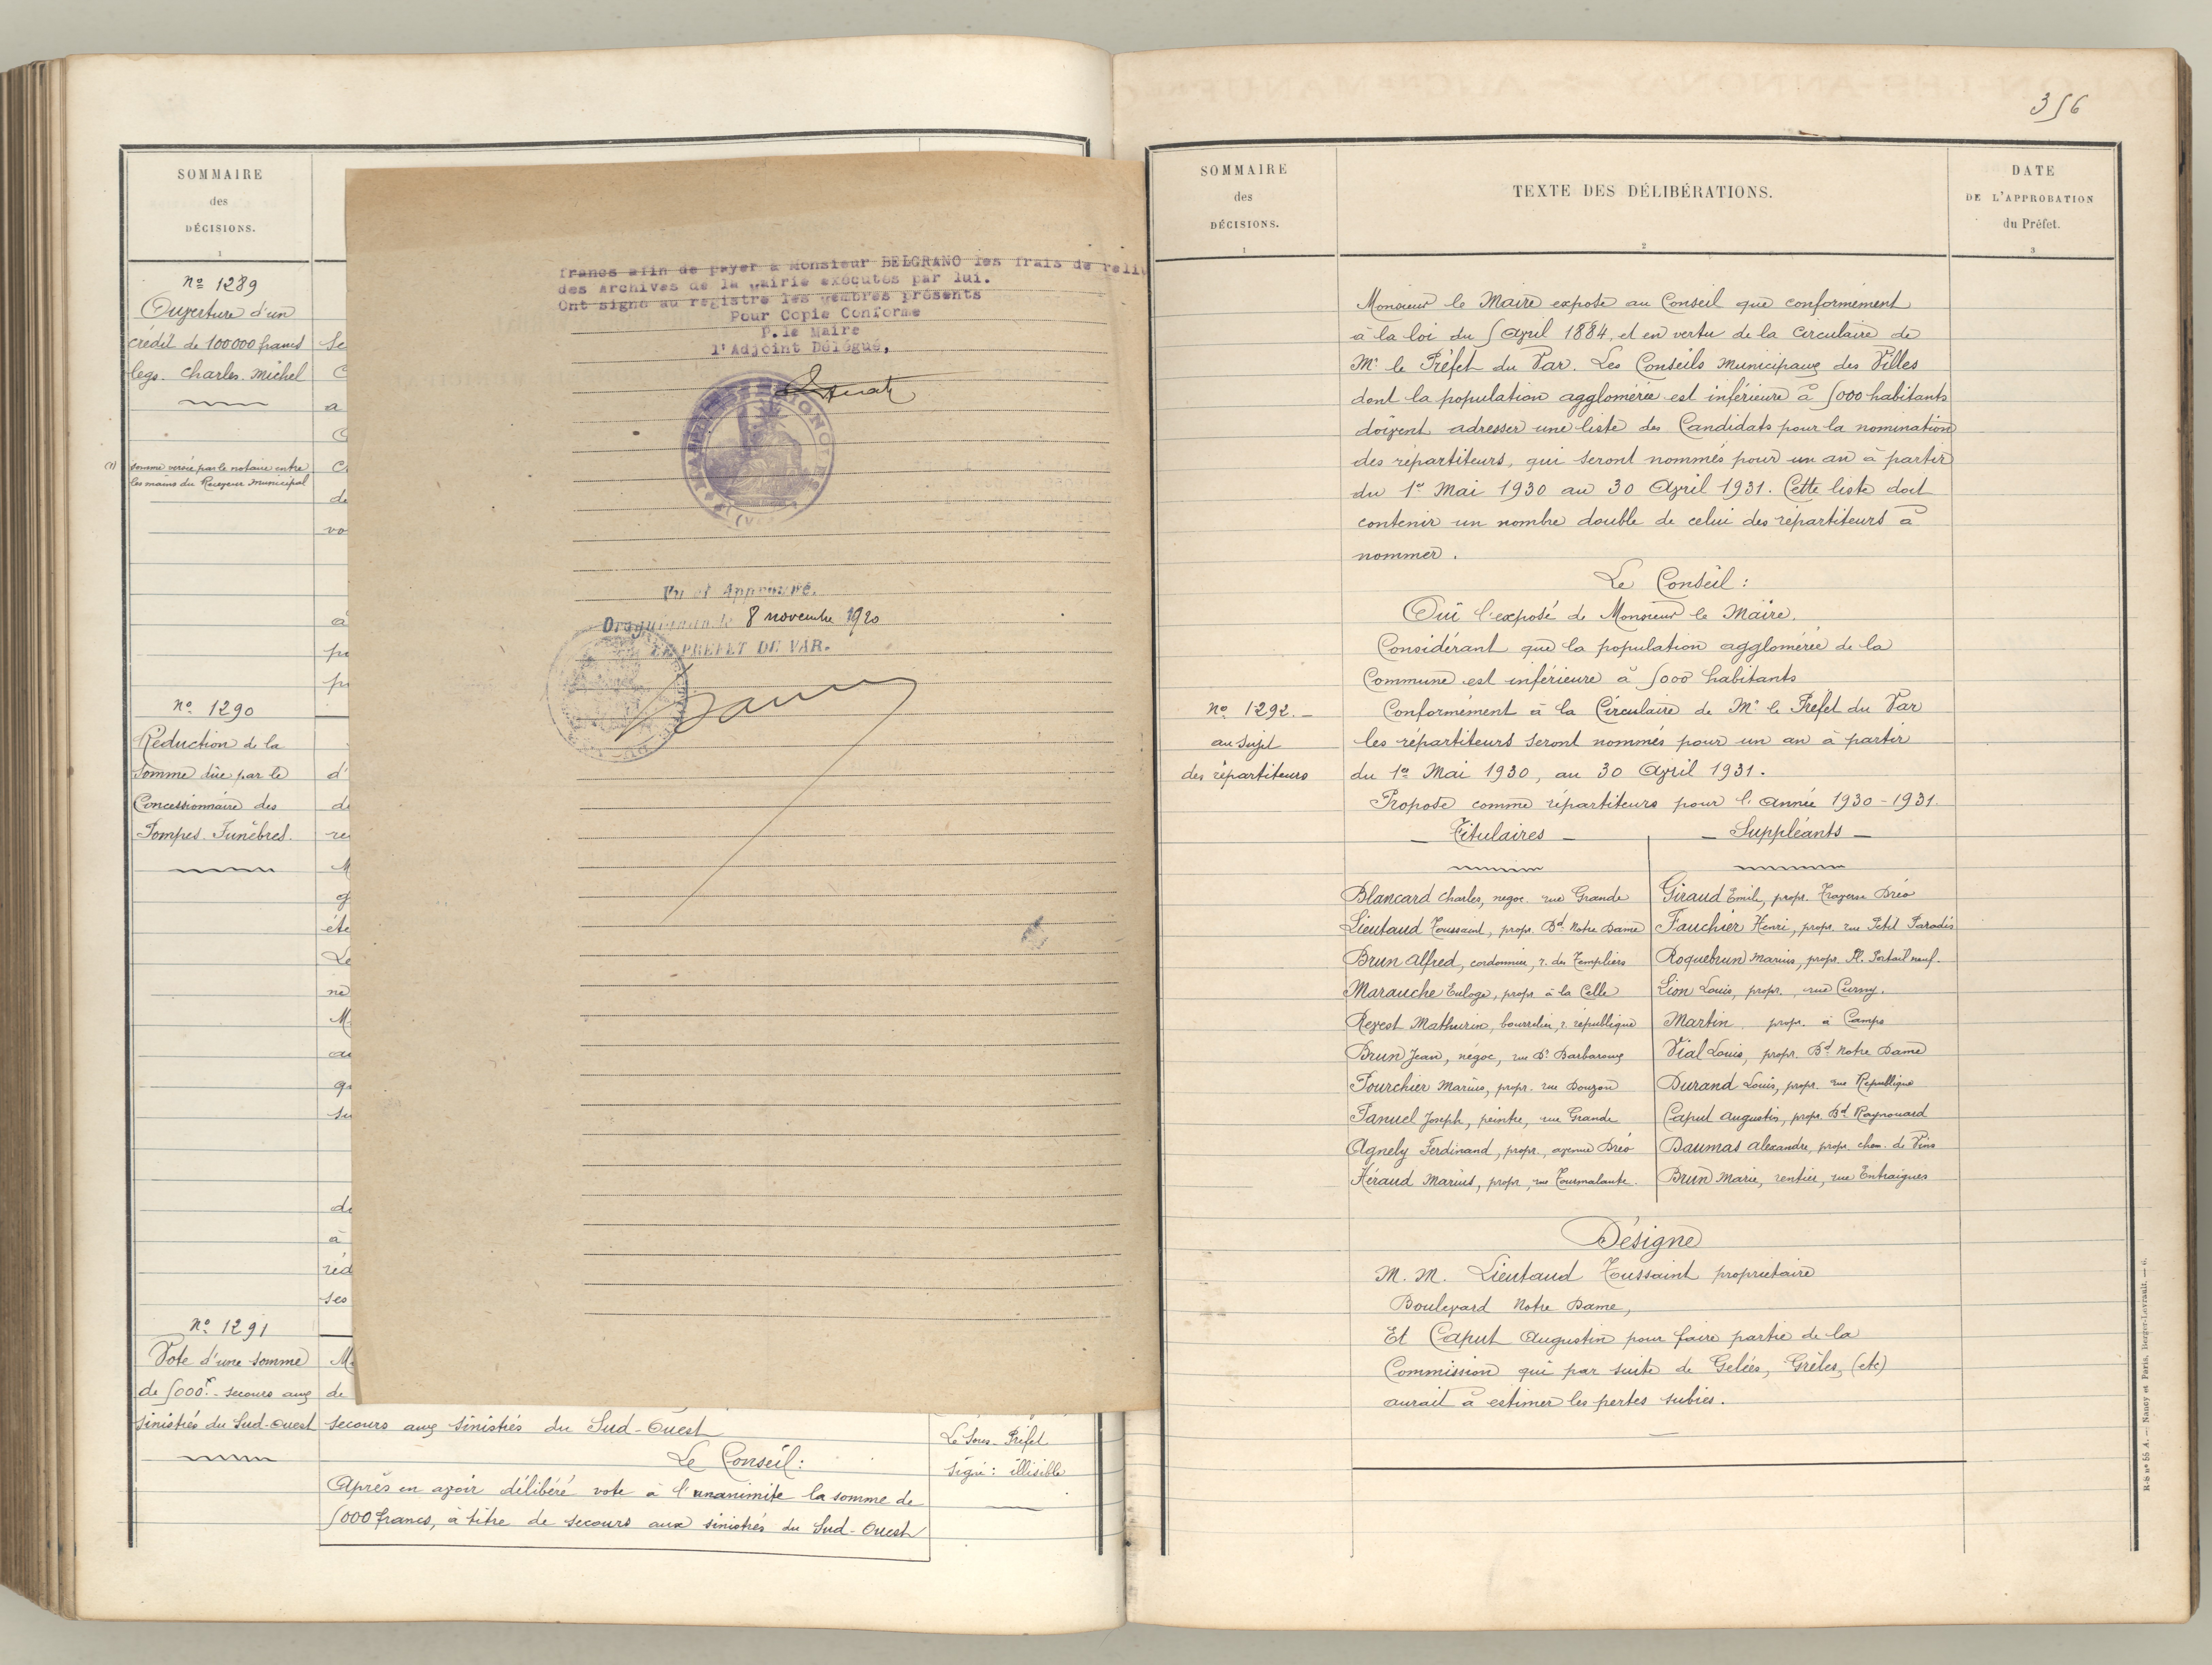 SOMMAIRE
des
DÉCISIONS.
1
nº 1289
Ouverture d'un
crédit de 100000 francs
legs. Charles. Michel
(1) somme versée par le notaire entre
les mains du Receveur municipal
nº 1290
Réduction de la
somme dûe par le
Concessionnaire des
Pompes. Funèbres.
nº 1291
Vote d'une somme
de 5000f. secours aux
sinistrés du Sud-Ouest
francs afin de payer à Monsieur BELGRANO les frais de reliu
des Archives de la Mairie exécutés par lui.
Ont signé au registre les Membres présents
Pour Copie Conforme
P.le Maire
l'Adjoint Délégué,
Vu et Approuvé.
Draguignan le 8 novembre 1920
LE PREFET DU VAR.
secours aux sinistrés du Sud-Ouest
Le Conseil:
Après en avoir délibéré vote à l'unanimite la somme de
5000 francs, à titre de secours aux sinistrés du Sud-Ouest
Le Sous-Préfet
signé: illisible
356
SOMMAIRE
des
DÉCISIONS.
1
TEXTE DES DÉLIBÉRATIONS.
2
DATE
DE L'APPROBATION
du Préfet.
3
Monsieur le Maire expose au Conseil que conformément
à la loi du 5 Avril 1884, et en vertu de la circulaire de
Mr le Préfet du Var. Les Conseils Municipaux des Villes
dont la population agglomérée est inférieure à 5000 habitants
doivent adresser une liste des Candidats pour la nomination
des repartiteurs, qui seront nommés pour un an à partir
du 1er Mai 1930 au 30 Avril 1931. Cette liste doit
contenir un nombre double de celui des répartiteurs à
nommer.
Le Conseil:
Ouï l'exposé de Monsieur le Maire.
Considérant que la population agglomérée de la
Commune est inférieure à 5000 habitants
nº 1292.
au sujet
des répartiteurs
Conformément à la Circulaire de Mr le Préfet du Var
les répartiteurs seront nommés pour un an à partir
du 1er Mai 1930, au 30 Avril 1931.
Propose comme répartiteurs pour l'année 1930-1931.
Titulaires — Suppléants —
Blancard Charles, negoc. rue Grande Giraud Emile, propr. Traverse Dréo
Lieutaud Toussaint, propr. Bd Notre Dame Fauchier Henri, propr. rue Petit Paradis
Brun Alfred, cordonnier, r. des Templiers Roquebrun Marius, propr. Pl. Portail neuf.
Marauche Euloge, propr à la Celle Lion Louis, propr., rue Curmy.
Revest Mathurin, bourrelier, r. république Martin propr. à Camps
Brun Jean, négoc, rue Dr Barbaroux Vial Louis, propr. Bd Notre Dame
Fourchier Marius, propr. rue Dougon Durand Louis, propr. rue République
Panuel Joseph, peintre, rue Grande Caput Augustin, propr. Bd Raynouard
Agnely Ferdinand, propr., avenue Dréo Daumas Alexandre, propr. chem. de Vins
Héraud Marius, propr, rue Tourmalante. Brun Marie, rentier, rue Entraigues
Désigne
M. M. Lieutaud Toussaint proprietaire
Boulevard Notre Dame,
Et Caput Augustin pour faire partie de la
Commission qui par suite de Gelées, Grêles, (etc)
aurait à estimer les pertes subies.
R-S nº 55 A. — Nancy et Paris, Berger-Levrault. — 6.